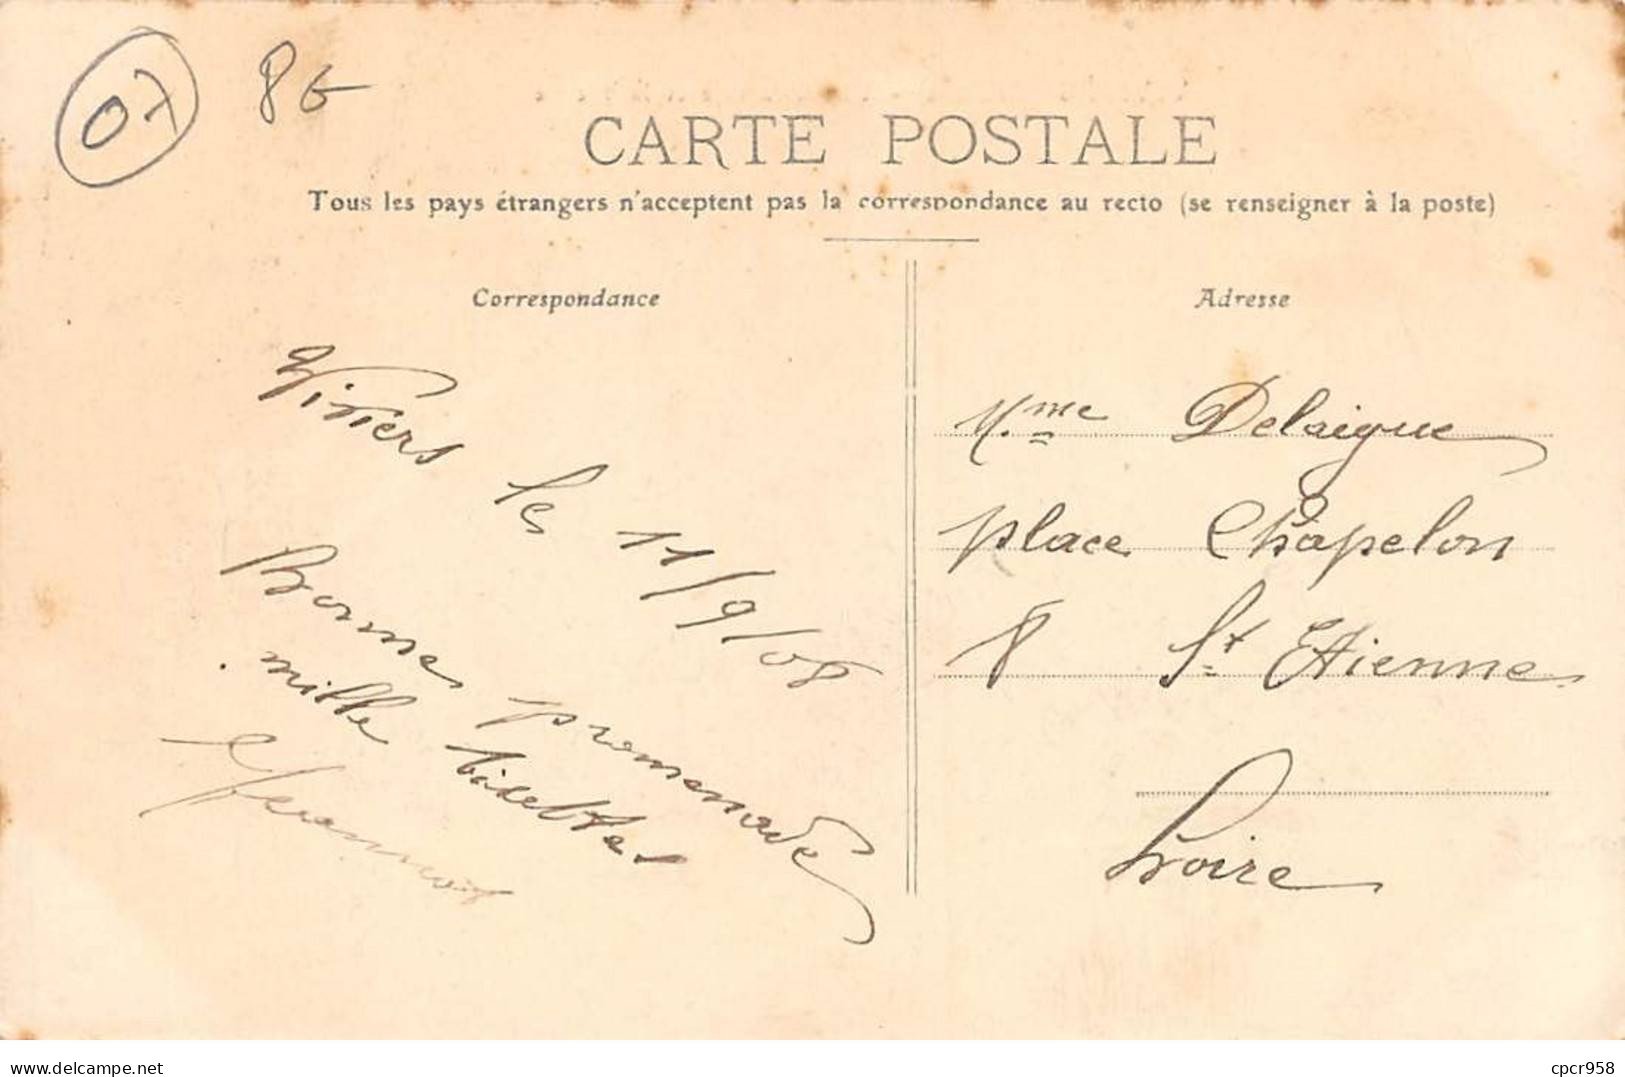 07
CARTE POSTALE
Tous les pays étrangers n'acceptent pas la correspondance au recto (se renseigner à la poste)
Correspondance
Viviers le 11/9/08
Bonne promenade
mille
Adresse
Mme Delaigue
place Chapelon
8 St Etienne
Loire
www.delcampe.net
cpcr958